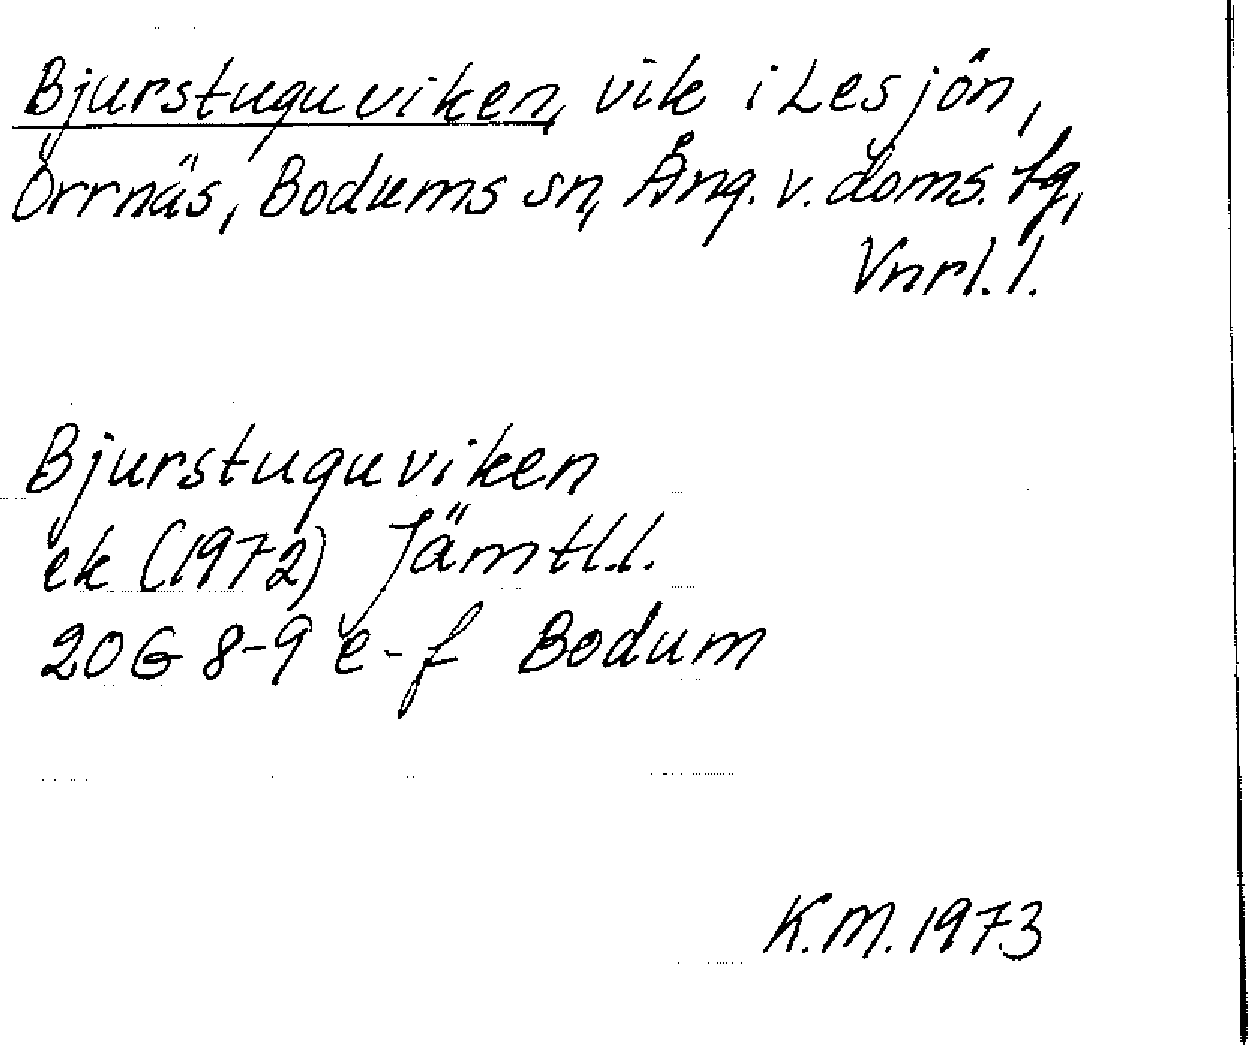 Bjurstuguviken, vik i Lesjön,
Orrnäs, Bodums sn, Ång. v. doms. tg,
Vnrl. l.
Bjurstuguviken
ek (1972) Jämtl.l.
20G 8-9 e-f Bodum
K.M. 1973